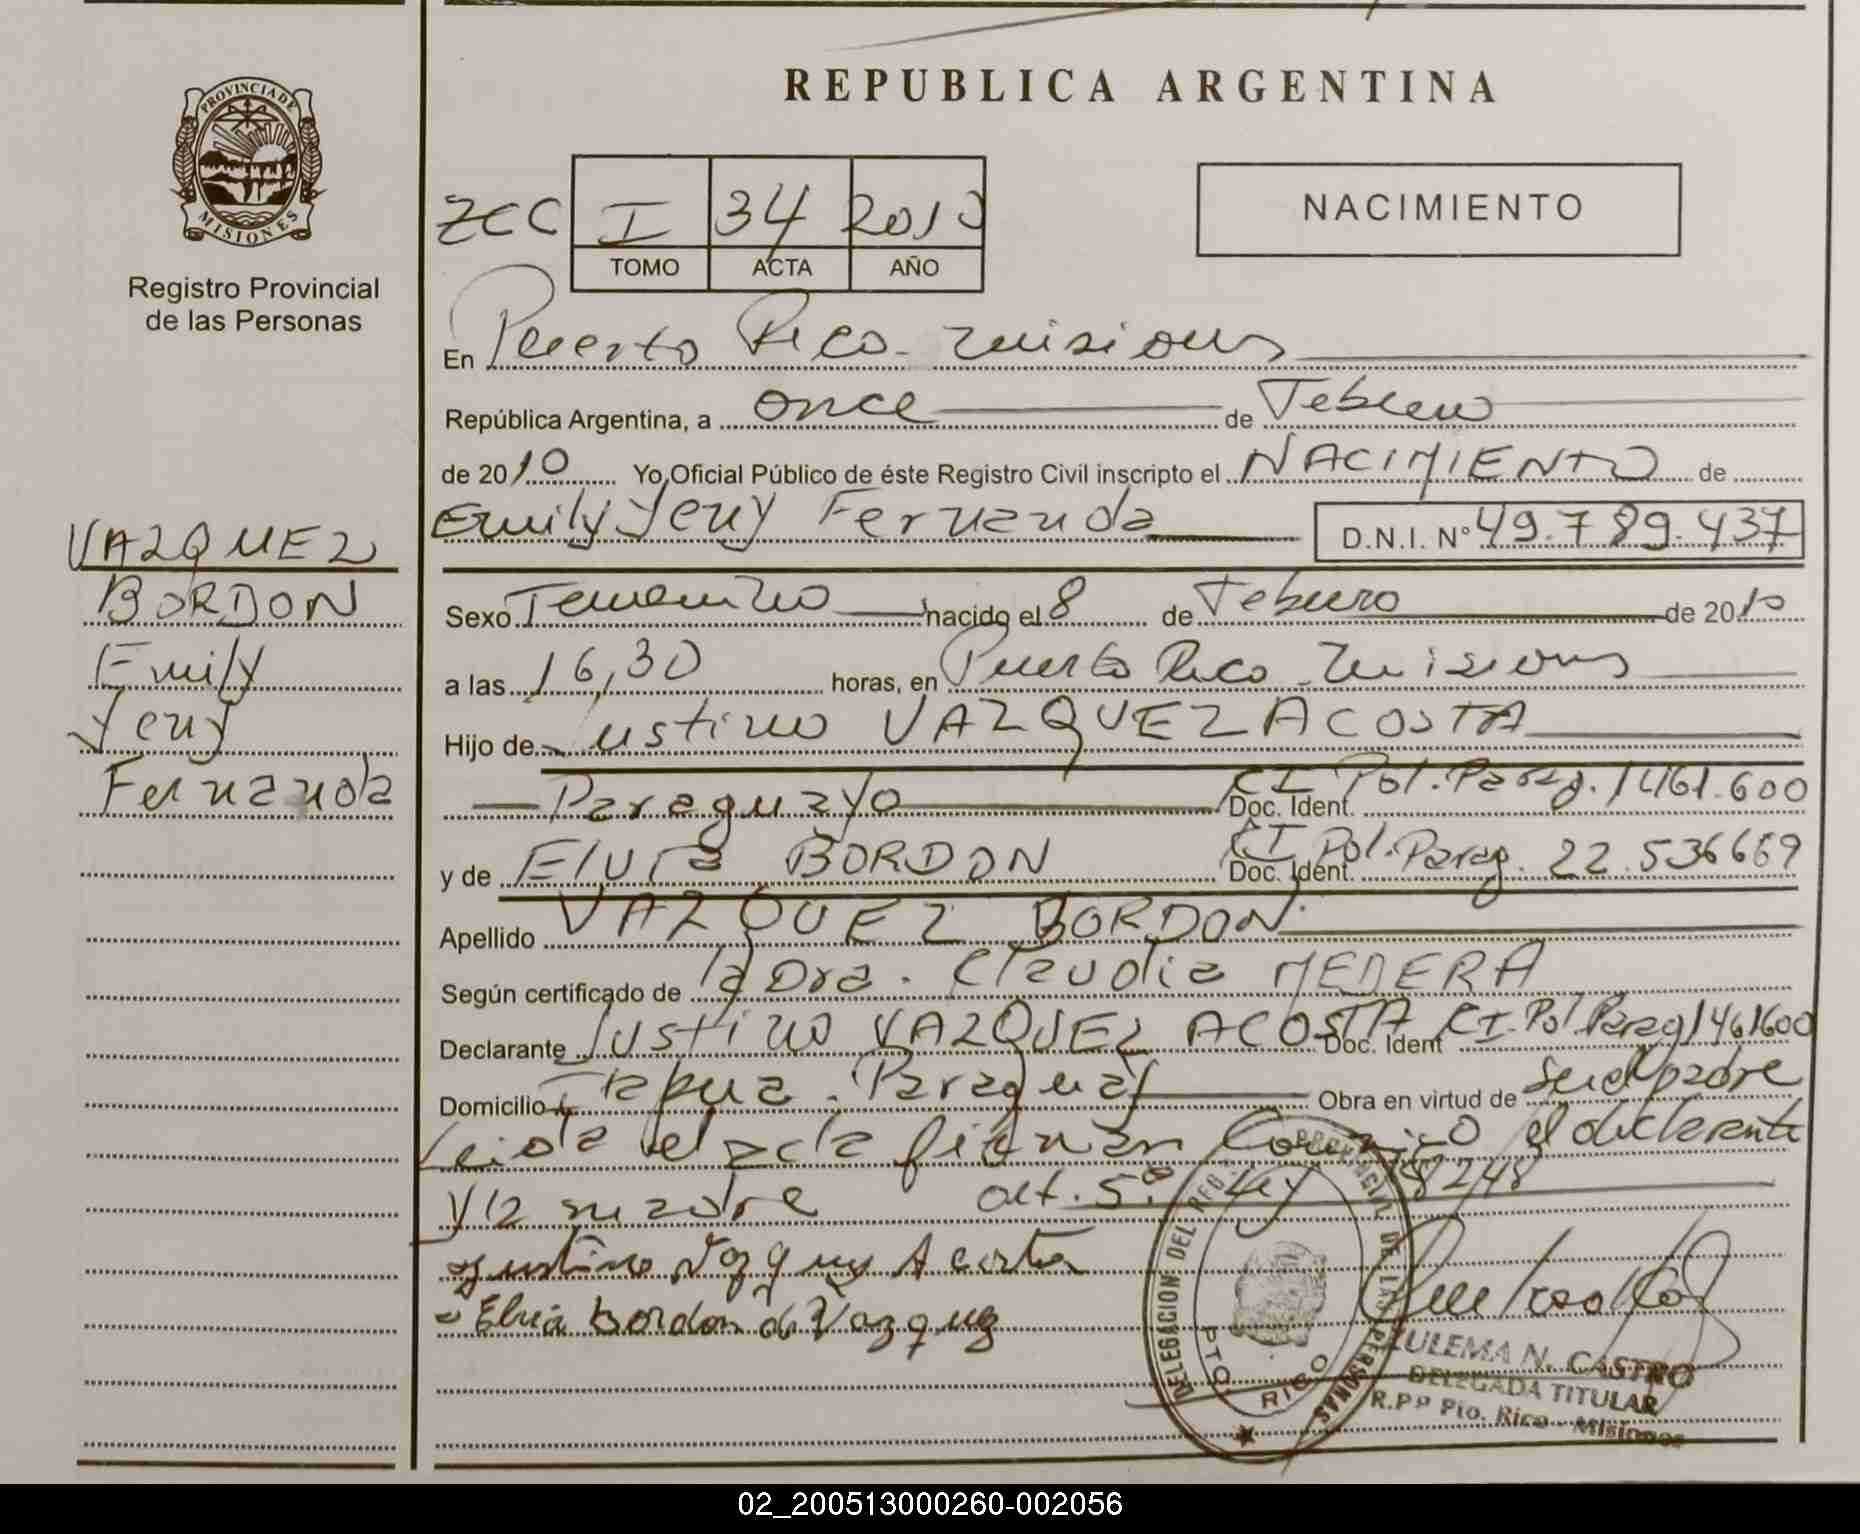 REPUBLICA ARGENTINA
PROVINCIA DE
MISIONES
Registro Provincial
de las Personas
I 34 2010
TOMO ACTA AÑO
NACIMIENTO
En Puerto Rico - Misiones
República Argentina, a once de Febrero
de 2010 Yo, Oficial Público de éste Registro Civil inscripto el NACIMIENTO de
Emily Yeny Fernanda D.N.I. Nº 49.789.437
VAZQUEZ
BORDON
Emily
Yeny
Fernanda
Sexo Femenino nacido el 8 de Febrero de 2010
a las 16,30 horas, en Puerto Rico - Misiones
Hijo de Justino VAZQUEZ ACOSTA
Paraguayo Doc. Ident. CI Pol. Parag. 1461.600
y de Elvira BORDON Doc. Ident. CI Pol. Parag. 22.536669
Apellido VAZQUEZ BORDON
Según certificado de la Dra. Claudia MEDERA
Declarante Justino VAZQUEZ ACOSTA Doc. Ident CI. Pol. Parag 1461600
Domicilio Itapua - Paraguay Obra en virtud de ser el padre
Leida el acta firman Conmigo el declarante
y la madre art. 5º Ley 18248
Justino Vazquez Acosta
Elvia Bordon de Vazquez
DELEGACION DEL REG. PROVINCIAL DE LAS PERSONAS
PTO. RICO
ZULEMA N. CASTRO
DELEGADA TITULAR
R.P.P Pto. Rico - Misiones
02_200513000260-002056